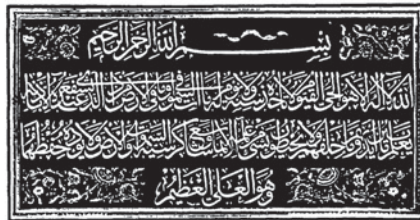 بسم الله الرحمن الرحيم
الله لا إله إلا هو الحي القيوم لا تأخذه سنة ولا نوم له ما في السموات وما في الأرض من ذا الذي يشفع عنده إلا بإذنه
يعلم ما بين أيديهم وما خلفهم ولا يحيطون بشيء من علمه إلا بما شاء وسع كرسيه السموات والأرض ولا يؤده حفظهما
وهو العلي العظيم